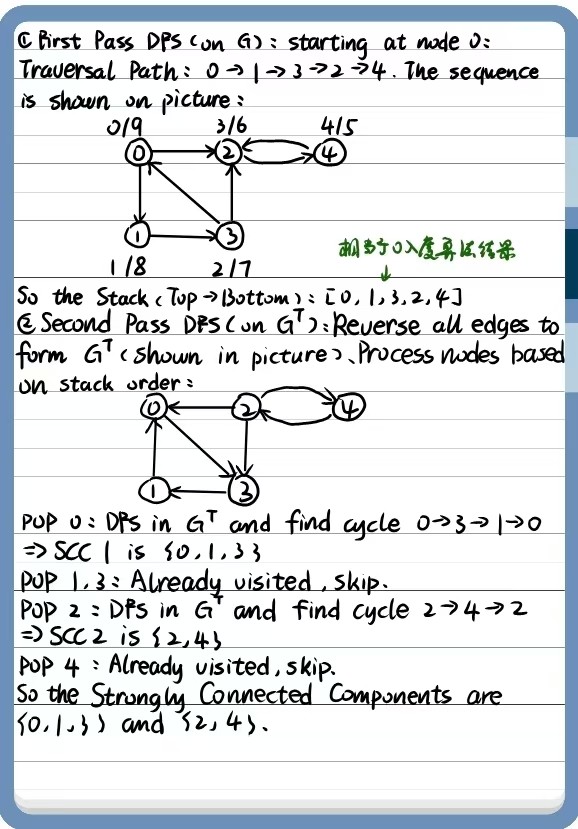 ① First Pass DFS (on G): starting at node 0:
Traversal Path: 0→1→3→2→4. The sequence
is shown on picture:
0/9 3/6 4/5
0 2 4
1 3
1/8 2/7
相当于0入度算法结果
So the Stack (Top→Bottom): [0, 1, 3, 2, 4]
② Second Pass DFS (on Gᵀ): Reverse all edges to
form Gᵀ (shown in picture). Process nodes based
on stack order:
0 2 4
1 3
POP 0: DFS in Gᵀ and find cycle 0→3→1→0
⇒ SCC 1 is {0, 1, 3}
POP 1, 3: Already visited, skip.
POP 2: DFS in Gᵀ and find cycle 2→4→2
⇒ SCC 2 is {2, 4}
POP 4: Already visited, skip.
So the Strongly Connected Components are
{0, 1, 3} and {2, 4}.